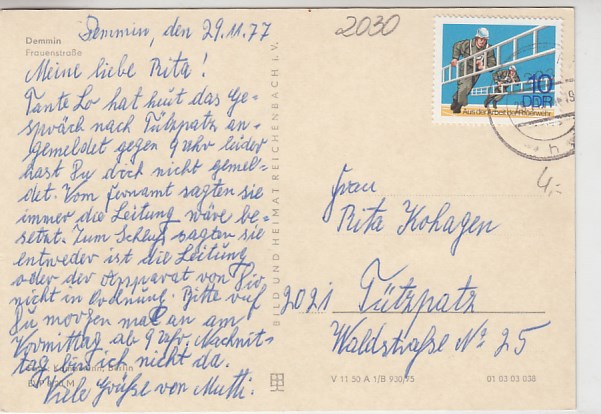 Demmin
Frauenstraße
Demmin, den 29.11.77
Meine liebe Rita!
Tante Lo hat heut das Ge-
spräch nach Tützpatz an-
gemeldet gegen 9 Uhr leider
hast Du dich nicht gemel-
det. Vom Fernamt sagten sie
immer die Leitung wäre be-
setzt. Zum Schluß sagten sie
entweder ist die Leitung
oder der Apparat von Dir
nicht in Ordnung. Bitte ruf
Du morgen mal an am
Vormittag ab 9 Uhr. Nachmit-
tag bin ich nicht da.
Viele Grüße von Mutti.
Berlin
BILD UND HEIMAT REICHENBACH i. V.
2030
10
DDR
Aus der Arbeit der Feuerwehr
4,-
Frau
Rita Kohagen
2021 Tützpatz
Waldstraße No 25
V 11 50 A 1/B 930/75
01 03 03 038